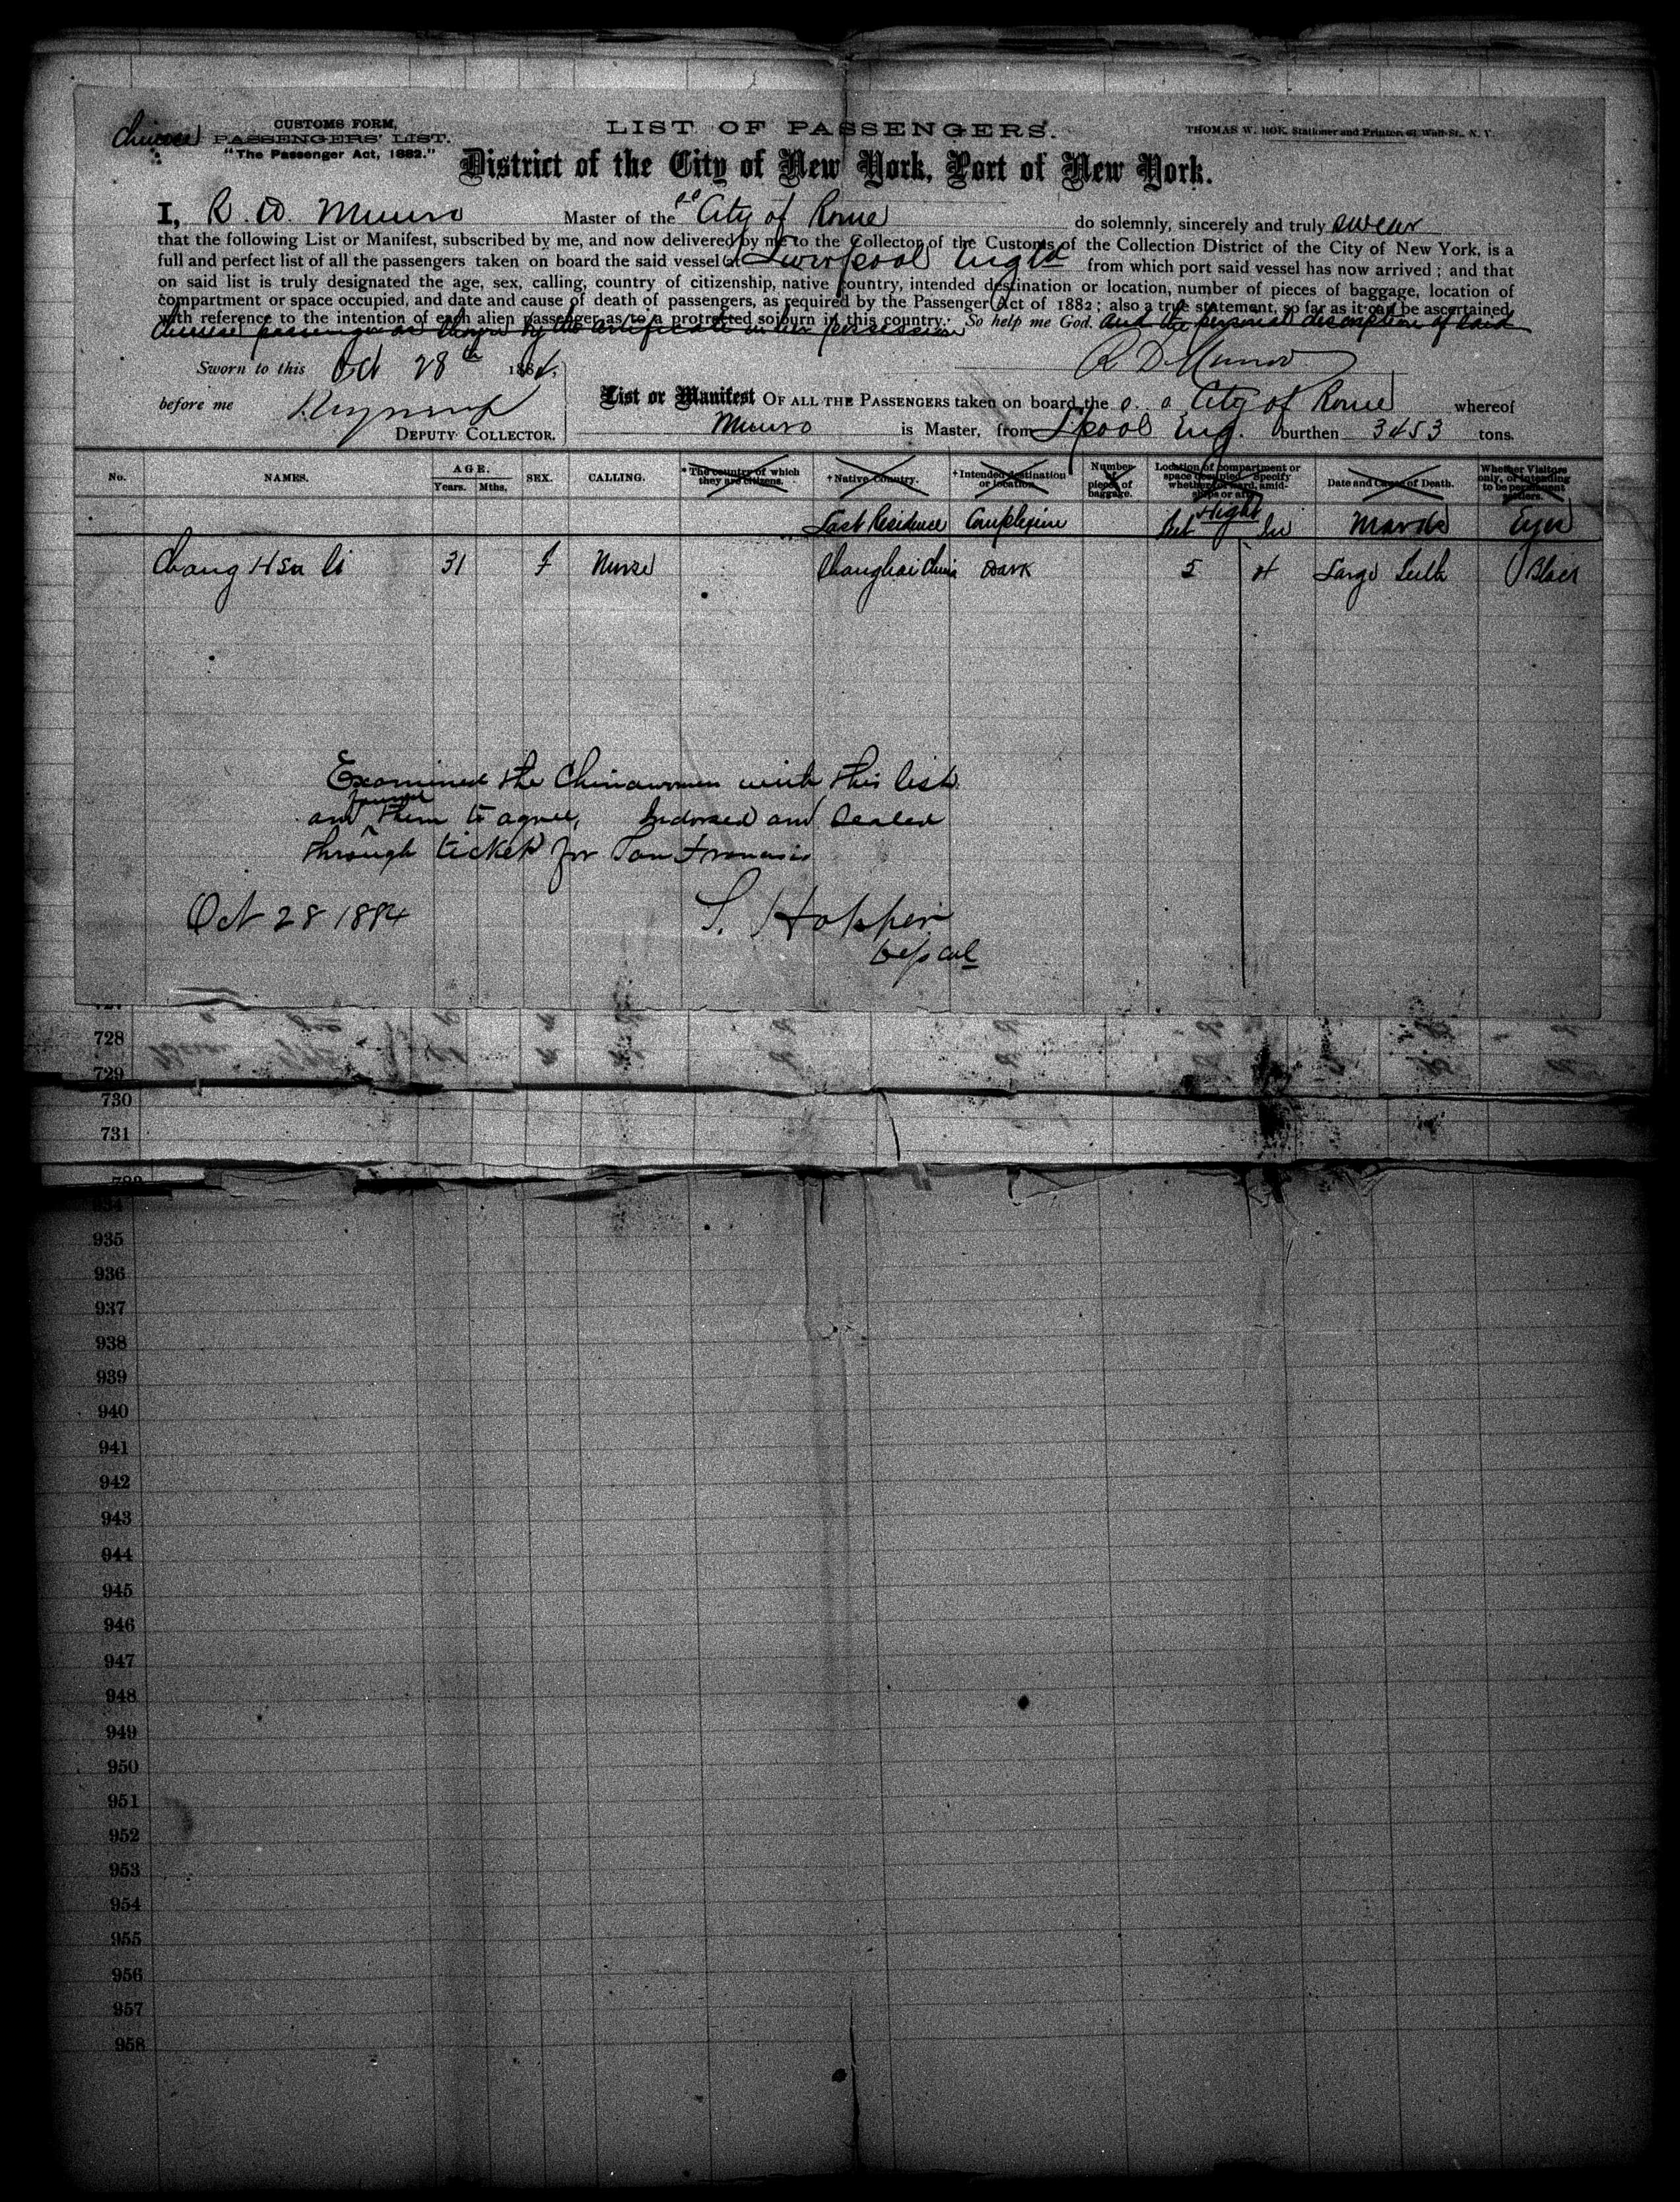 Chinese
CUSTOMS FORM,
PASSENGERS' LIST.
"The Passenger Act, 1882."
LIST OF PASSENGERS.
THOMAS W. HOE, Stationer and Printer, 61 Wall St., N. Y.
District of the City of New York, Port of New York.
I, R. D. Munro Master of the SS City of Rome do solemnly, sincerely and truly swear
that the following List or Manifest, subscribed by me, and now delivered by me to the Collector of the Customs of the Collection District of the City of New York, is a
full and perfect list of all the passengers taken on board the said vessel at Liverpool Engld from which port said vessel has now arrived; and that
on said list is truly designated the age, sex, calling, country of citizenship, native country, intended destination or location, number of pieces of baggage, location of
compartment or space occupied, and date and cause of death of passengers, as required by the Passenger Act of 1882; also a true statement, so far as it can be ascertained,
with reference to the intention of each alien passenger as to a protracted sojourn in this country. So help me God. and the personal description of said
Chinese passenger as shown by the certificate in her possession
Sworn to this Oct 28th 1884,
R D Munro
before me
DEPUTY COLLECTOR.
List or Manifest OF ALL THE PASSENGERS taken on board the s. s. City of Rome whereof
Munro is Master, from L'pool Eng. burthen 3453 tons.
No. NAMES. AGE. Years. Mths. SEX. CALLING. *The country of which they are citizens. †Native Country. †Intended destination or location. Number of pieces of baggage. Location of compartment or space occupied. Specify whether forward, amidships or aft. Date and Cause of Death. Whether Visitors only, or intending to be permanent settlers.
Last Residence Complexion Height Feet In Marks Eyes
Chang Hsu li 31 f Nurse Shanghai China Dark 5 4 Large Teeth Black
Examined the Chinawoman with this list
and found them to agree, Indorsed and Sealed
through ticket for San Francisco
Oct 28 1884
S. Hopper
Dep Col
728
729
730
731
934
935
936
937
938
939
940
941
942
943
944
945
946
947
948
949
950
951
952
953
954
955
956
957
958